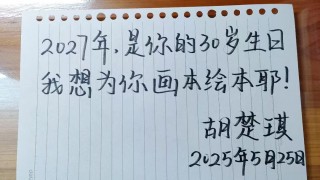 2027年，是你的30岁生日
我想为你画本绘本耶！
胡楚琪
2025年5月25日